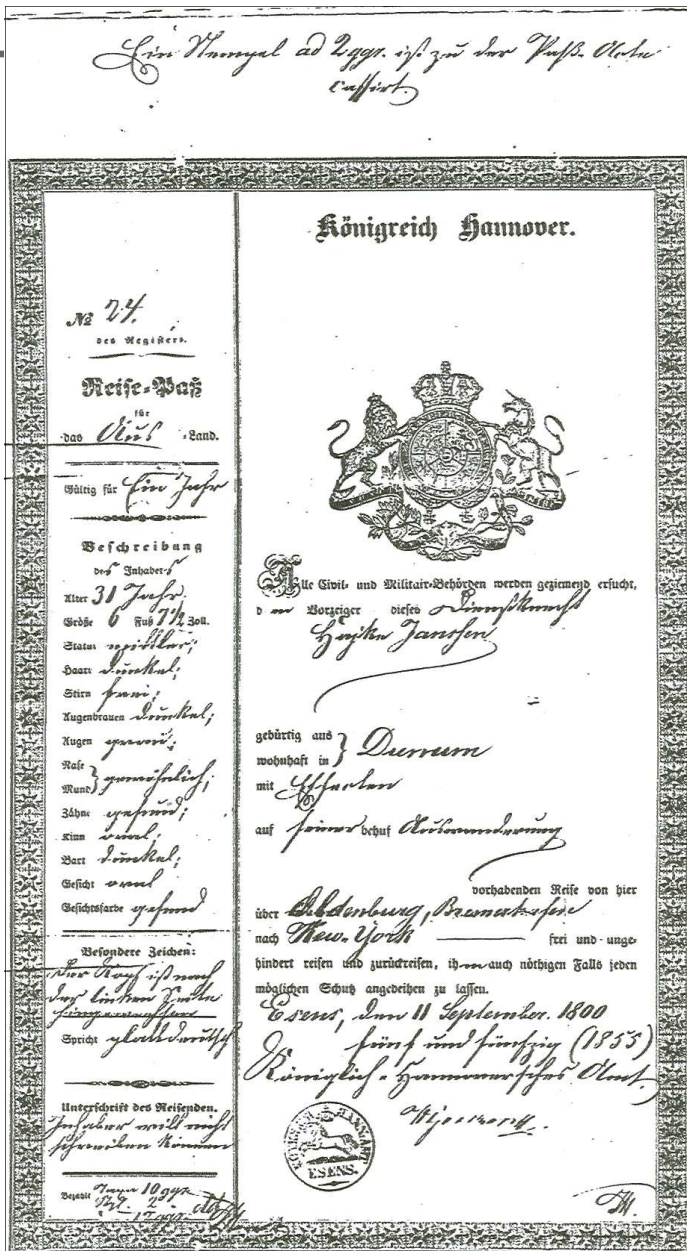 Ein Stempel ad 2 ggr. ist zu der Paß-Acte
cassirt.
Königreich Hannover.
№ 24.
des Registers.
Reise-Paß
für
das Aus-Land.
Gültig für Ein Jahr
Beschreibung
des Inhabers
Alter 31 Jahr.
Größe 6 Fuß 7½ Zoll.
Statur mittler;
Haare dunkel;
Stirn frei;
Augenbrauen dunkel;
Augen grau;
Nase
Mund } gewöhnlich;
Zähne gesund;
Kinn oval;
Bart dunkel;
Gesicht oval
Gesichtsfarbe gesund
Besondere Zeichen:
Der Kopf ist nach
der linken Seite
hingewachsen
Spricht plattdeutsch
Unterschrift des Reisenden.
Inhaber will nicht
schreiben können
Bezahlt 10 ggr.
2
12 ggr.
Alle Civil- und Militair-Behörden werden geziemend ersucht,
den Vorzeiger dieses Dienstknecht
Hajke Janssen
gebürtig aus
wohnhaft in } Dunum
mit Effecten
auf seiner behuf Auswanderung
vorhabenden Reise von hier
über Oldenburg, Bremerhafen
nach New-York frei und unge-
hindert reisen und zurückreisen, ihm auch nöthigen Falls jeden
möglichen Schutz angedeihen zu lassen.
Esens, den 11 September. 1800
fünf und fünfzig (1855)
Königlich-Hannoversches Amt.
ESENS.